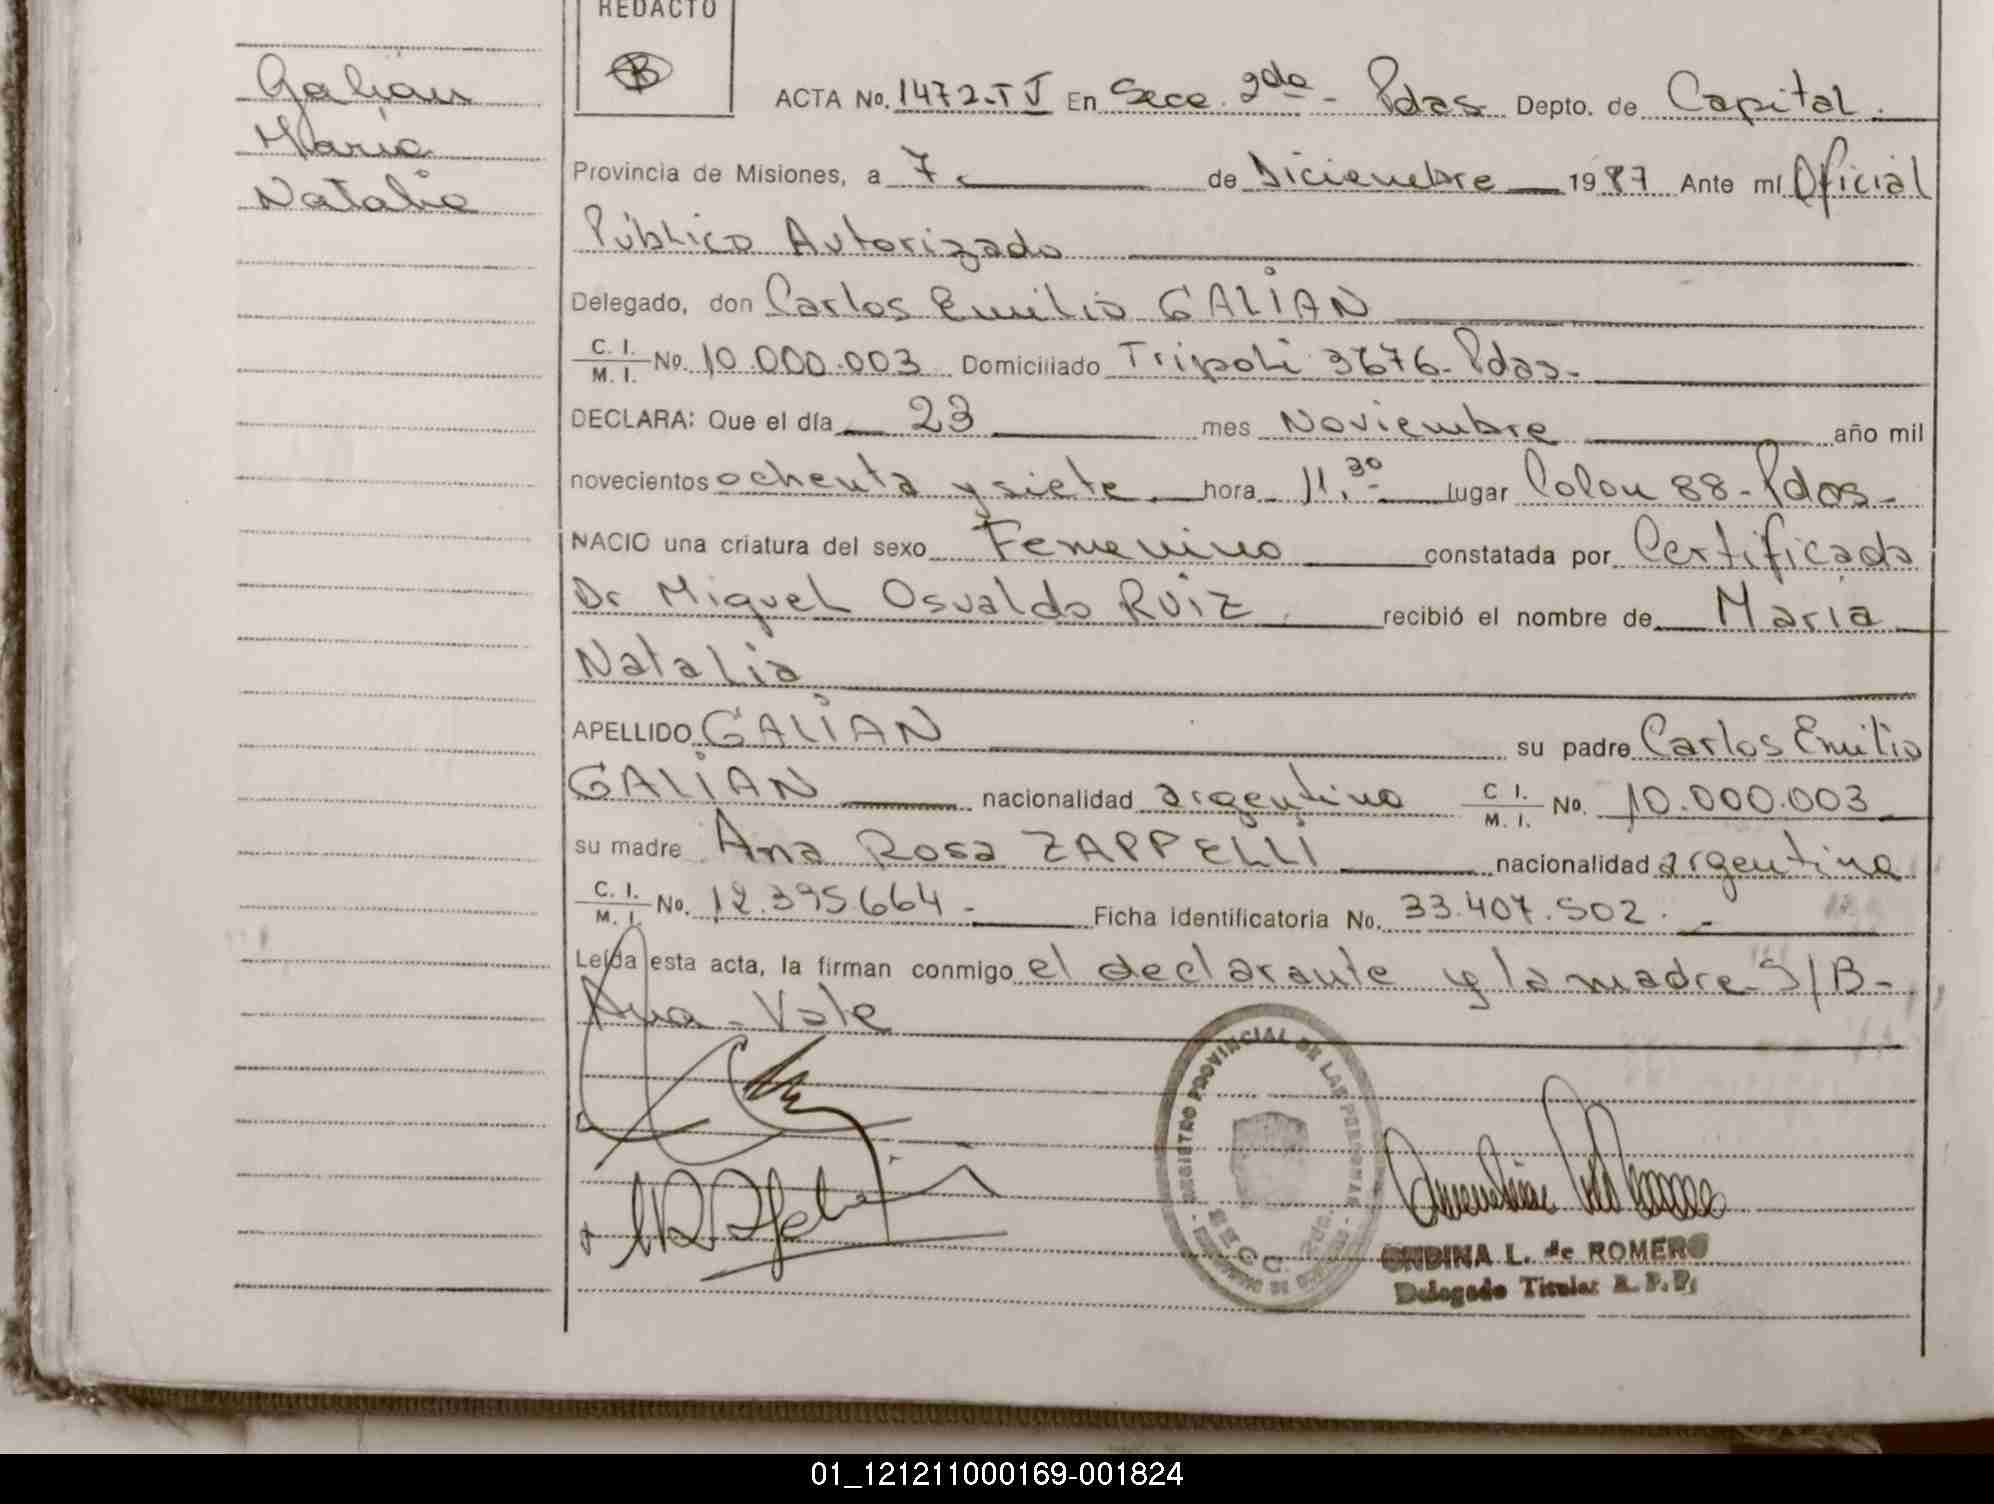 REDACTO
Galián
María
Natalia
ACTA No. 1472-TJ En Secc. 2da - Pdas Depto. de Capital.
Provincia de Misiones, a 7 de Diciembre 1987 Ante mí Oficial
Público Autorizado
Delegado, don Carlos Emilio GALIAN
C. I.
M. I. No. 10.000.003 Domiciliado Tripoli 3676- Pdas-
DECLARA: Que el día 23 mes Noviembre año mil
novecientos ochenta y siete hora 11.30 lugar Colon 88- Pdas-
NACIO una criatura del sexo Femenino constatada por Certificado
Dr Miguel Osvaldo RUIZ recibió el nombre de María
Natalia
APELLIDO GALIAN su padre Carlos Emilio
GALIAN nacionalidad argentino C I.
M. I. No. 10.000.003
su madre Ana Rosa ZAPPELLI nacionalidad argentina
C. I.
M. I. No. 12.395.664- Ficha identificatoria No. 33.407.502.-
Leída esta acta, la firman conmigo el declarante y la madre S/B-
Ana - Vale
REGISTRO PROVINCIAL DE LAS PERSONAS
SECC. 2da.
ONDINA L. de ROMERO
Delegado Titular R. P. P.
01_121211000169-001824